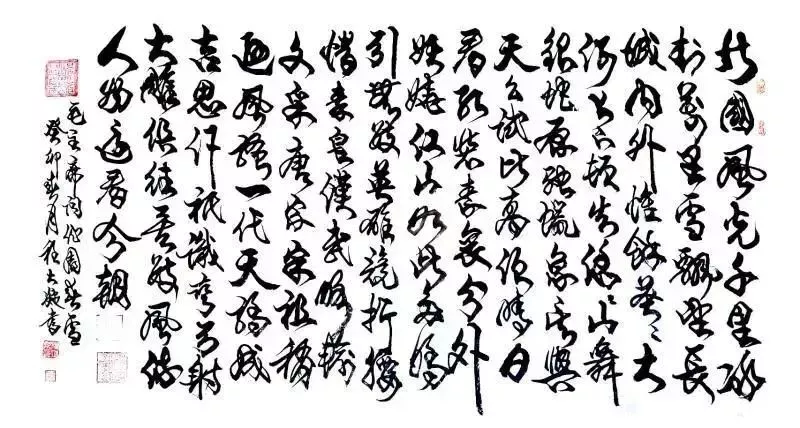 北國風光千里冰
封萬里雪飄望長
城內外惟餘莽々大
河上下頓失滔々山舞
銀蛇原馳蠟象欲與
天公試比高須晴日
看紅裝素裹分外
妖嬈江山如此多嬌
引無數英雄競折腰
惜秦皇漢武略輸
文采唐宗宋祖稍
遜風騷一代天驕成
吉思汗祇識彎弓射
大雕俱往矣數風流
人物還看今朝
毛主席詞沁園春雪
癸卯春月 大 書